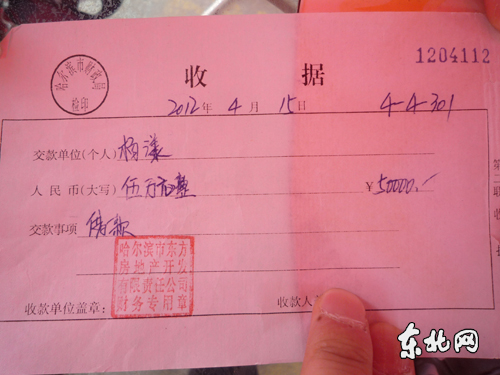 哈尔滨市财政局
检印
收 据
1204112
2012年 4月 15日 4-4-301
交款单位(个人) 杨漾
人民币(大写) 伍万元整 ¥50000.-
交款事项 借款
哈尔滨市东方
房地产开发
有限责任公司
财务专用章
收款单位盖章: 收款人
第二联
收
东北网